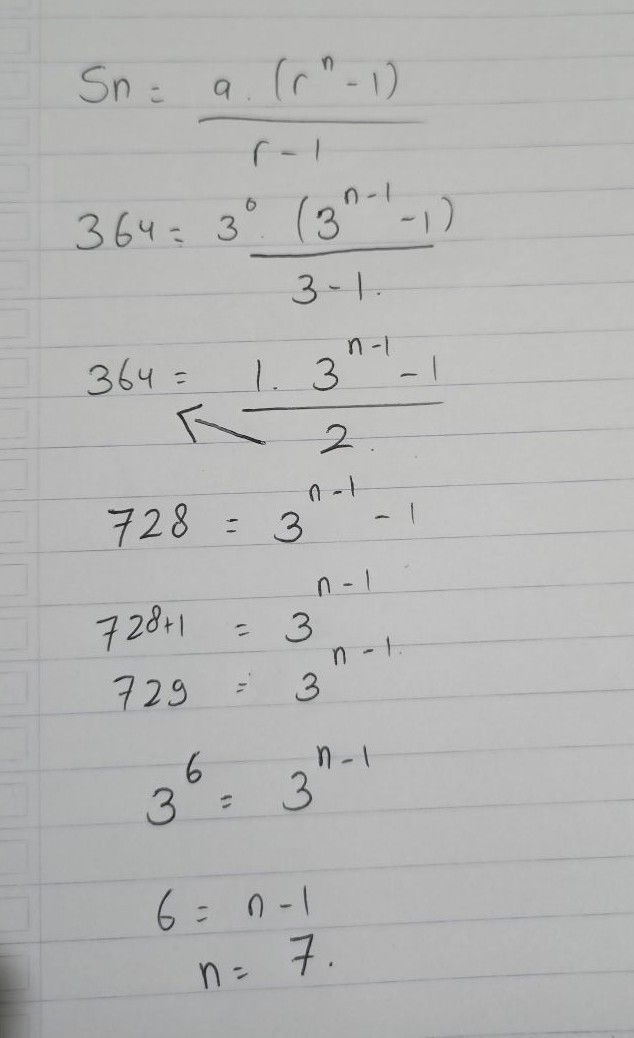 Sn = a. (rⁿ - 1)
r - 1
364 = 3⁰. (3ⁿ⁻¹ - 1)
3 - 1.
364 = 1. 3ⁿ⁻¹ - 1
2.
728 = 3ⁿ⁻¹ - 1
728+1 = 3ⁿ⁻¹
729 = 3ⁿ⁻¹.
3⁶ = 3ⁿ⁻¹
6 = n - 1
n = 7.